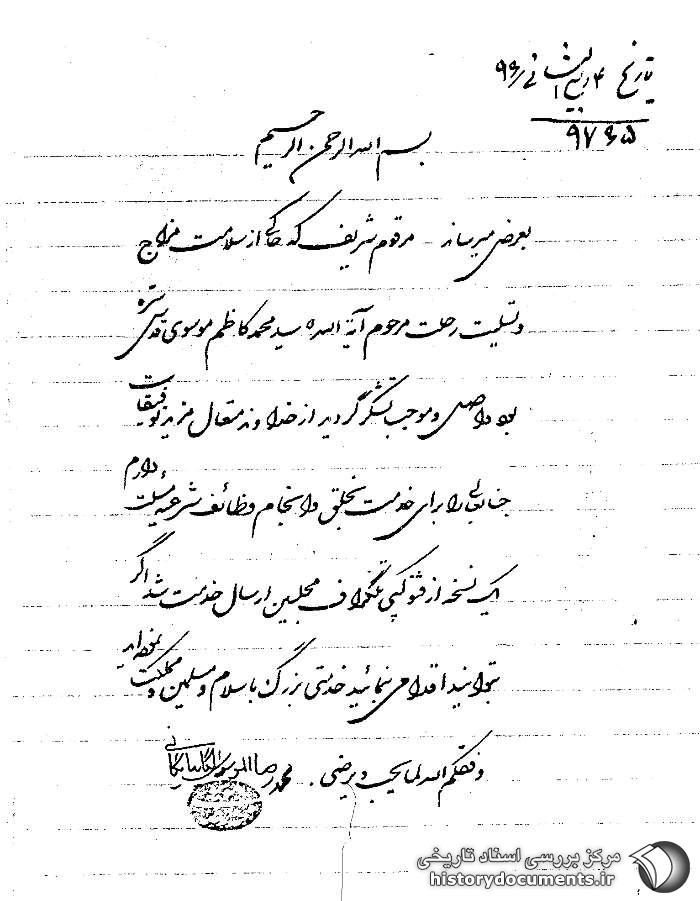 تاریخ ۴ ربیع الثانی ۹۶
۹۷۶۵
بسم الله الرحمن الرحیم
بعرض میرساند - مرقوم شریف که حاکی از سلامت مزاج
و تسلیت رحلت مرحوم آیة الله سید محمد کاظم موسوی قدس سره
بود واصل و موجب تشکر گردید از خداوند متعال مزید توفیقات
جنابعالی را برای خدمت بخلق و انجام وظائف شرعیه مسئلت دارم
یک نسخه از فتوکپی تلگراف مجلسین ارسال خدمت شد اگر
بتوانید اقدامی بنمائید خدمتی بزرگ باسلام و مسلمین و مملکت نموده‌اید
وفقکم الله لما یحب و یرضی . محمد رضا الموسوی الگلپایگانی
مرکز بررسی اسناد تاریخی
historydocuments.ir